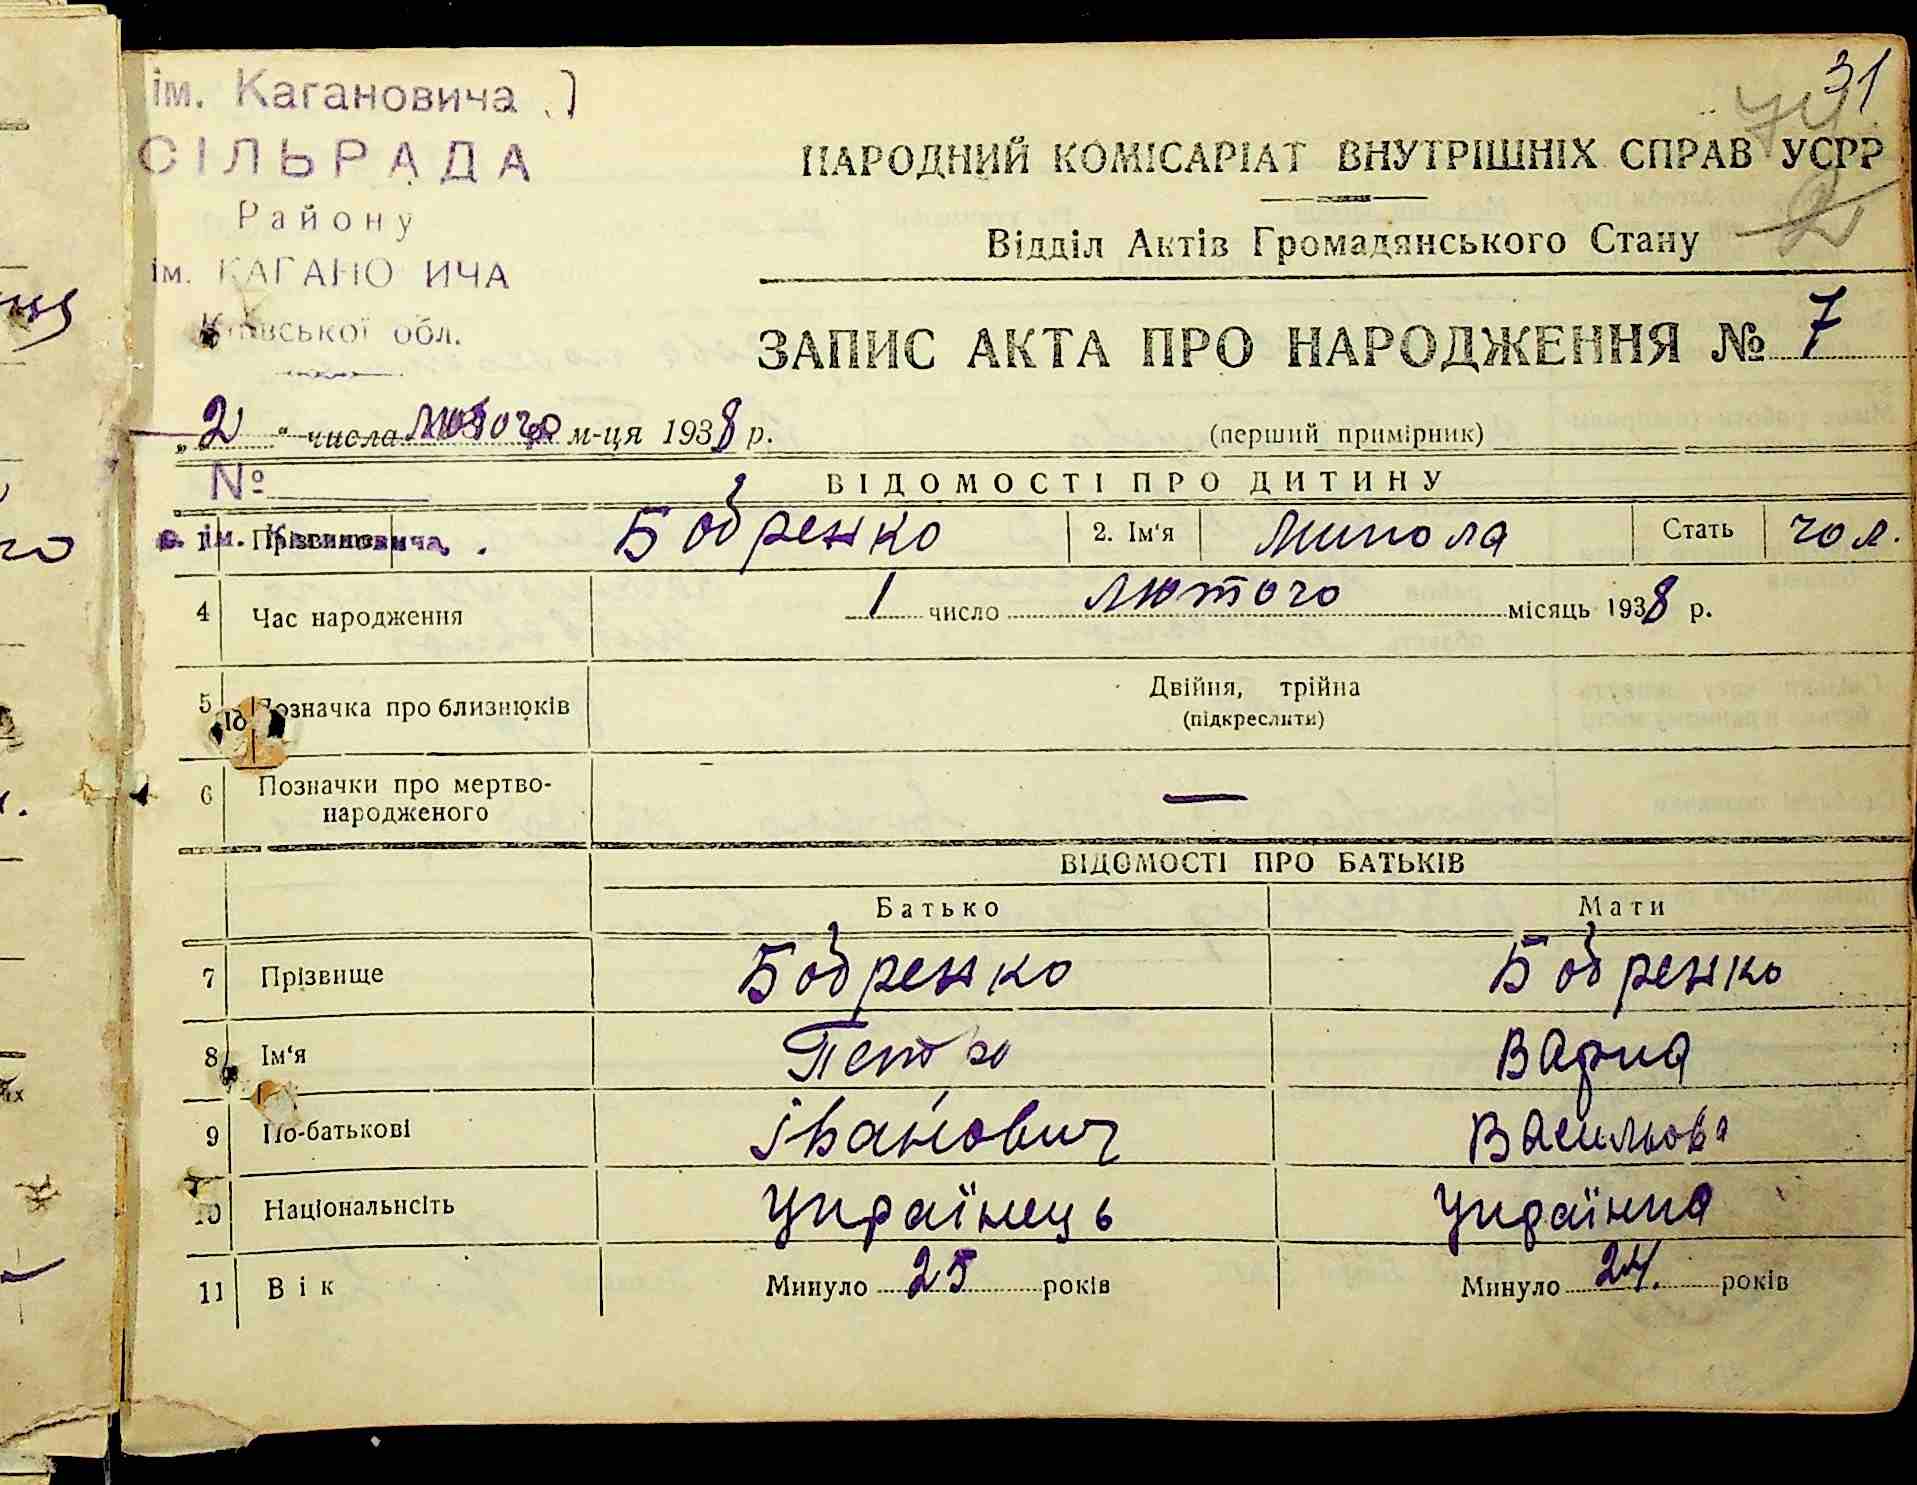 31
74
2
ім. Кагановича
СІЛЬРАДА
Району
ім. КАГАНО ИЧА
Київської обл.
НАРОДНИЙ КОМІСАРІАТ ВНУТРІШНІХ СПРАВ УСРР
Відділ Актів Громадянського Стану
ЗАПИС АКТА ПРО НАРОДЖЕННЯ № 7
„2" числа лютого м-ця 1938 р.
(перший примірник)
№
ВІДОМОСТІ ПРО ДИТИНУ
с. ім. Кагановича.
1 Прізвище Бобренко 2. Ім'я Микола Стать чол.
4 Час народження 1 число лютого місяць 1938 р.
5 Позначка про близнюків Двійня, трійна
(підкреслити)
6 Позначки про мертво-
народженого —
ВІДОМОСТІ ПРО БАТЬКІВ
Батько Мати
7 Прізвище Бобренко Бобренко
8 Ім'я Петро Варка
9 По-батькові Іванович Васильова
10 Національність Українець Українка
11 Вік Минуло 25 років Минуло 24. років